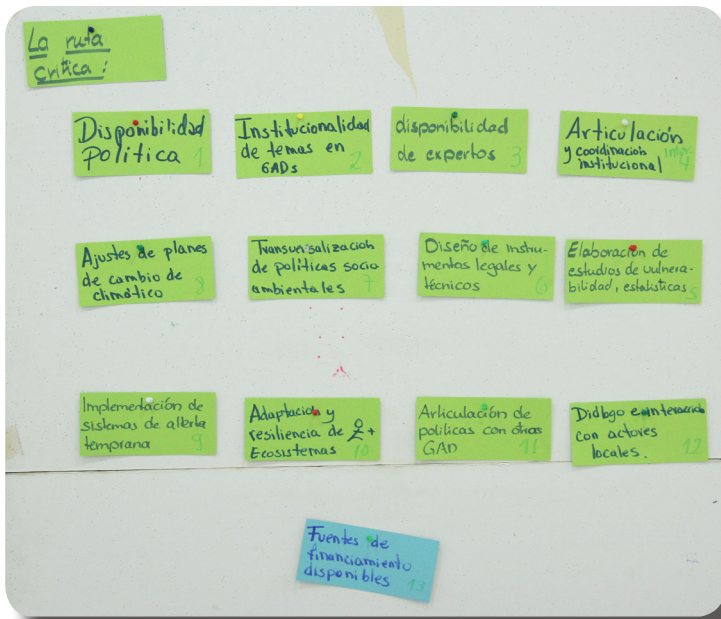 La ruta
crítica:
Disponibilidad
política 1
Institucionalidad
de temas en 2
GADs
disponibilidad
de expertos 3
Articulación
y coordinación inter-
institucional 4
Ajustes de planes
de cambio de
climático 8
Transversalización
de políticas socio
ambientales 7
Diseño de instru-
mentos legales y
técnicos 6
Elaboración de
estudios de vulnera-
bilidad, estalísticas 5
Implementación de
sistemas de allerta
temprana 9
Adaptación y
resiliencia de +
Ecosistemas 10
Articulación de
políticas con otros
GAD 11
Diálogo e interacción
con actores
locales. 12
Fuentes de
financiamiento
disponibles 13